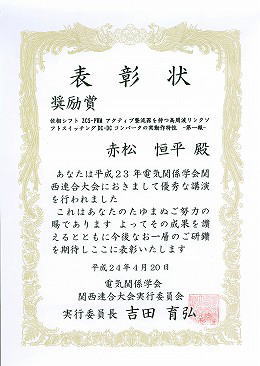 表彰状
奨励賞
位相シフト ZCS-PWM アクティブ整流器を持つ高周波リンクソ
フトスイッチング DC-DC コンバータの実動作特性 -第一報-
赤松 恒平 殿
あなたは平成23年電気関係学会関
西連合大会におきまして優秀な講演
を行われました
これはあなたのたゆまぬご努力の
賜であります よってその成果を讃
えるとともに今後なお一層のご研鑽
を期待しここに表彰いたします
平成24年4月20日
電気関係学会
関西連合大会実行委員会
実行委員長 吉田 育弘